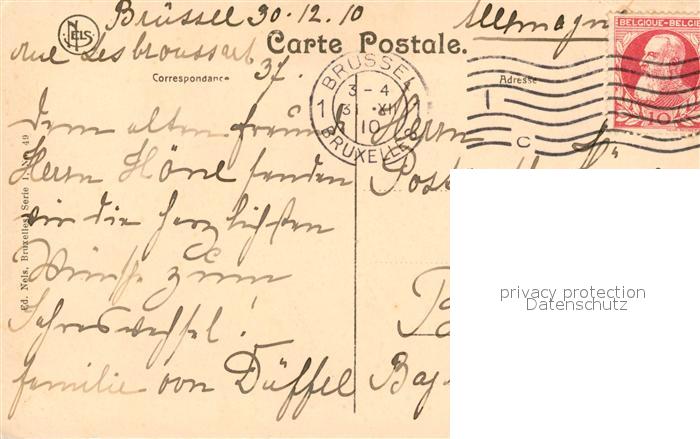 Brüssel 30.12.10
rue Lesbroussart
37.
NELS
Carte Postale.
Allemagne
BELGIQUE-BELGIE
10
Correspondance
Adresse
BRUSSEL
1
3-4
31 XII
10
BRUXELLES
1
C
Dem alten Freund
Herrn Höne senden
wir die herzlichsten
Wünsche zum
Jahreswechsel!
Familie von Düffel
Herrn
Post
Ed. Nels, Bruxelles, Serie 1 No. 49
privacy protection
Datenschutz